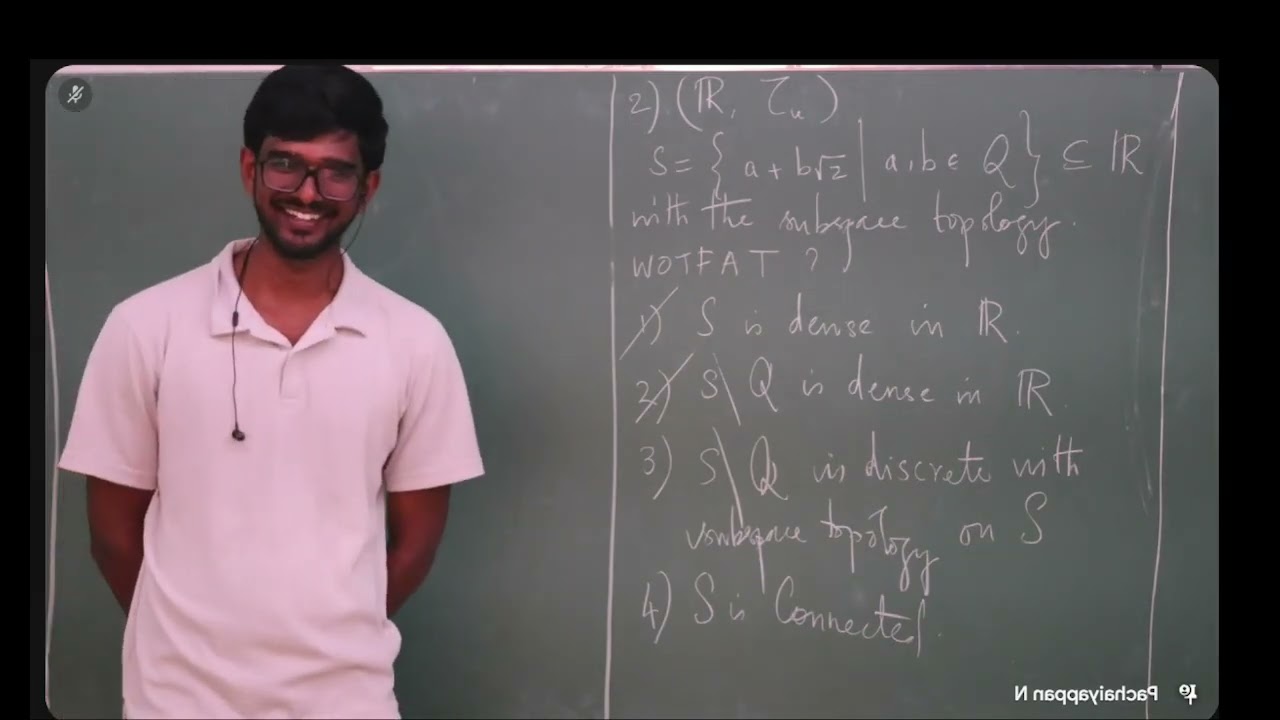 2) (ℝ, τᵤ)
S = { a + b√2 | a, b ∈ Q } ⊆ ℝ
with the subspace topology.
WOTFAT ?
1) S is dense in ℝ.
2) S \ Q is dense in ℝ.
3) S \ Q is discrete with
subspace topology on S
4) S is Connected.
Pachaiyappan N